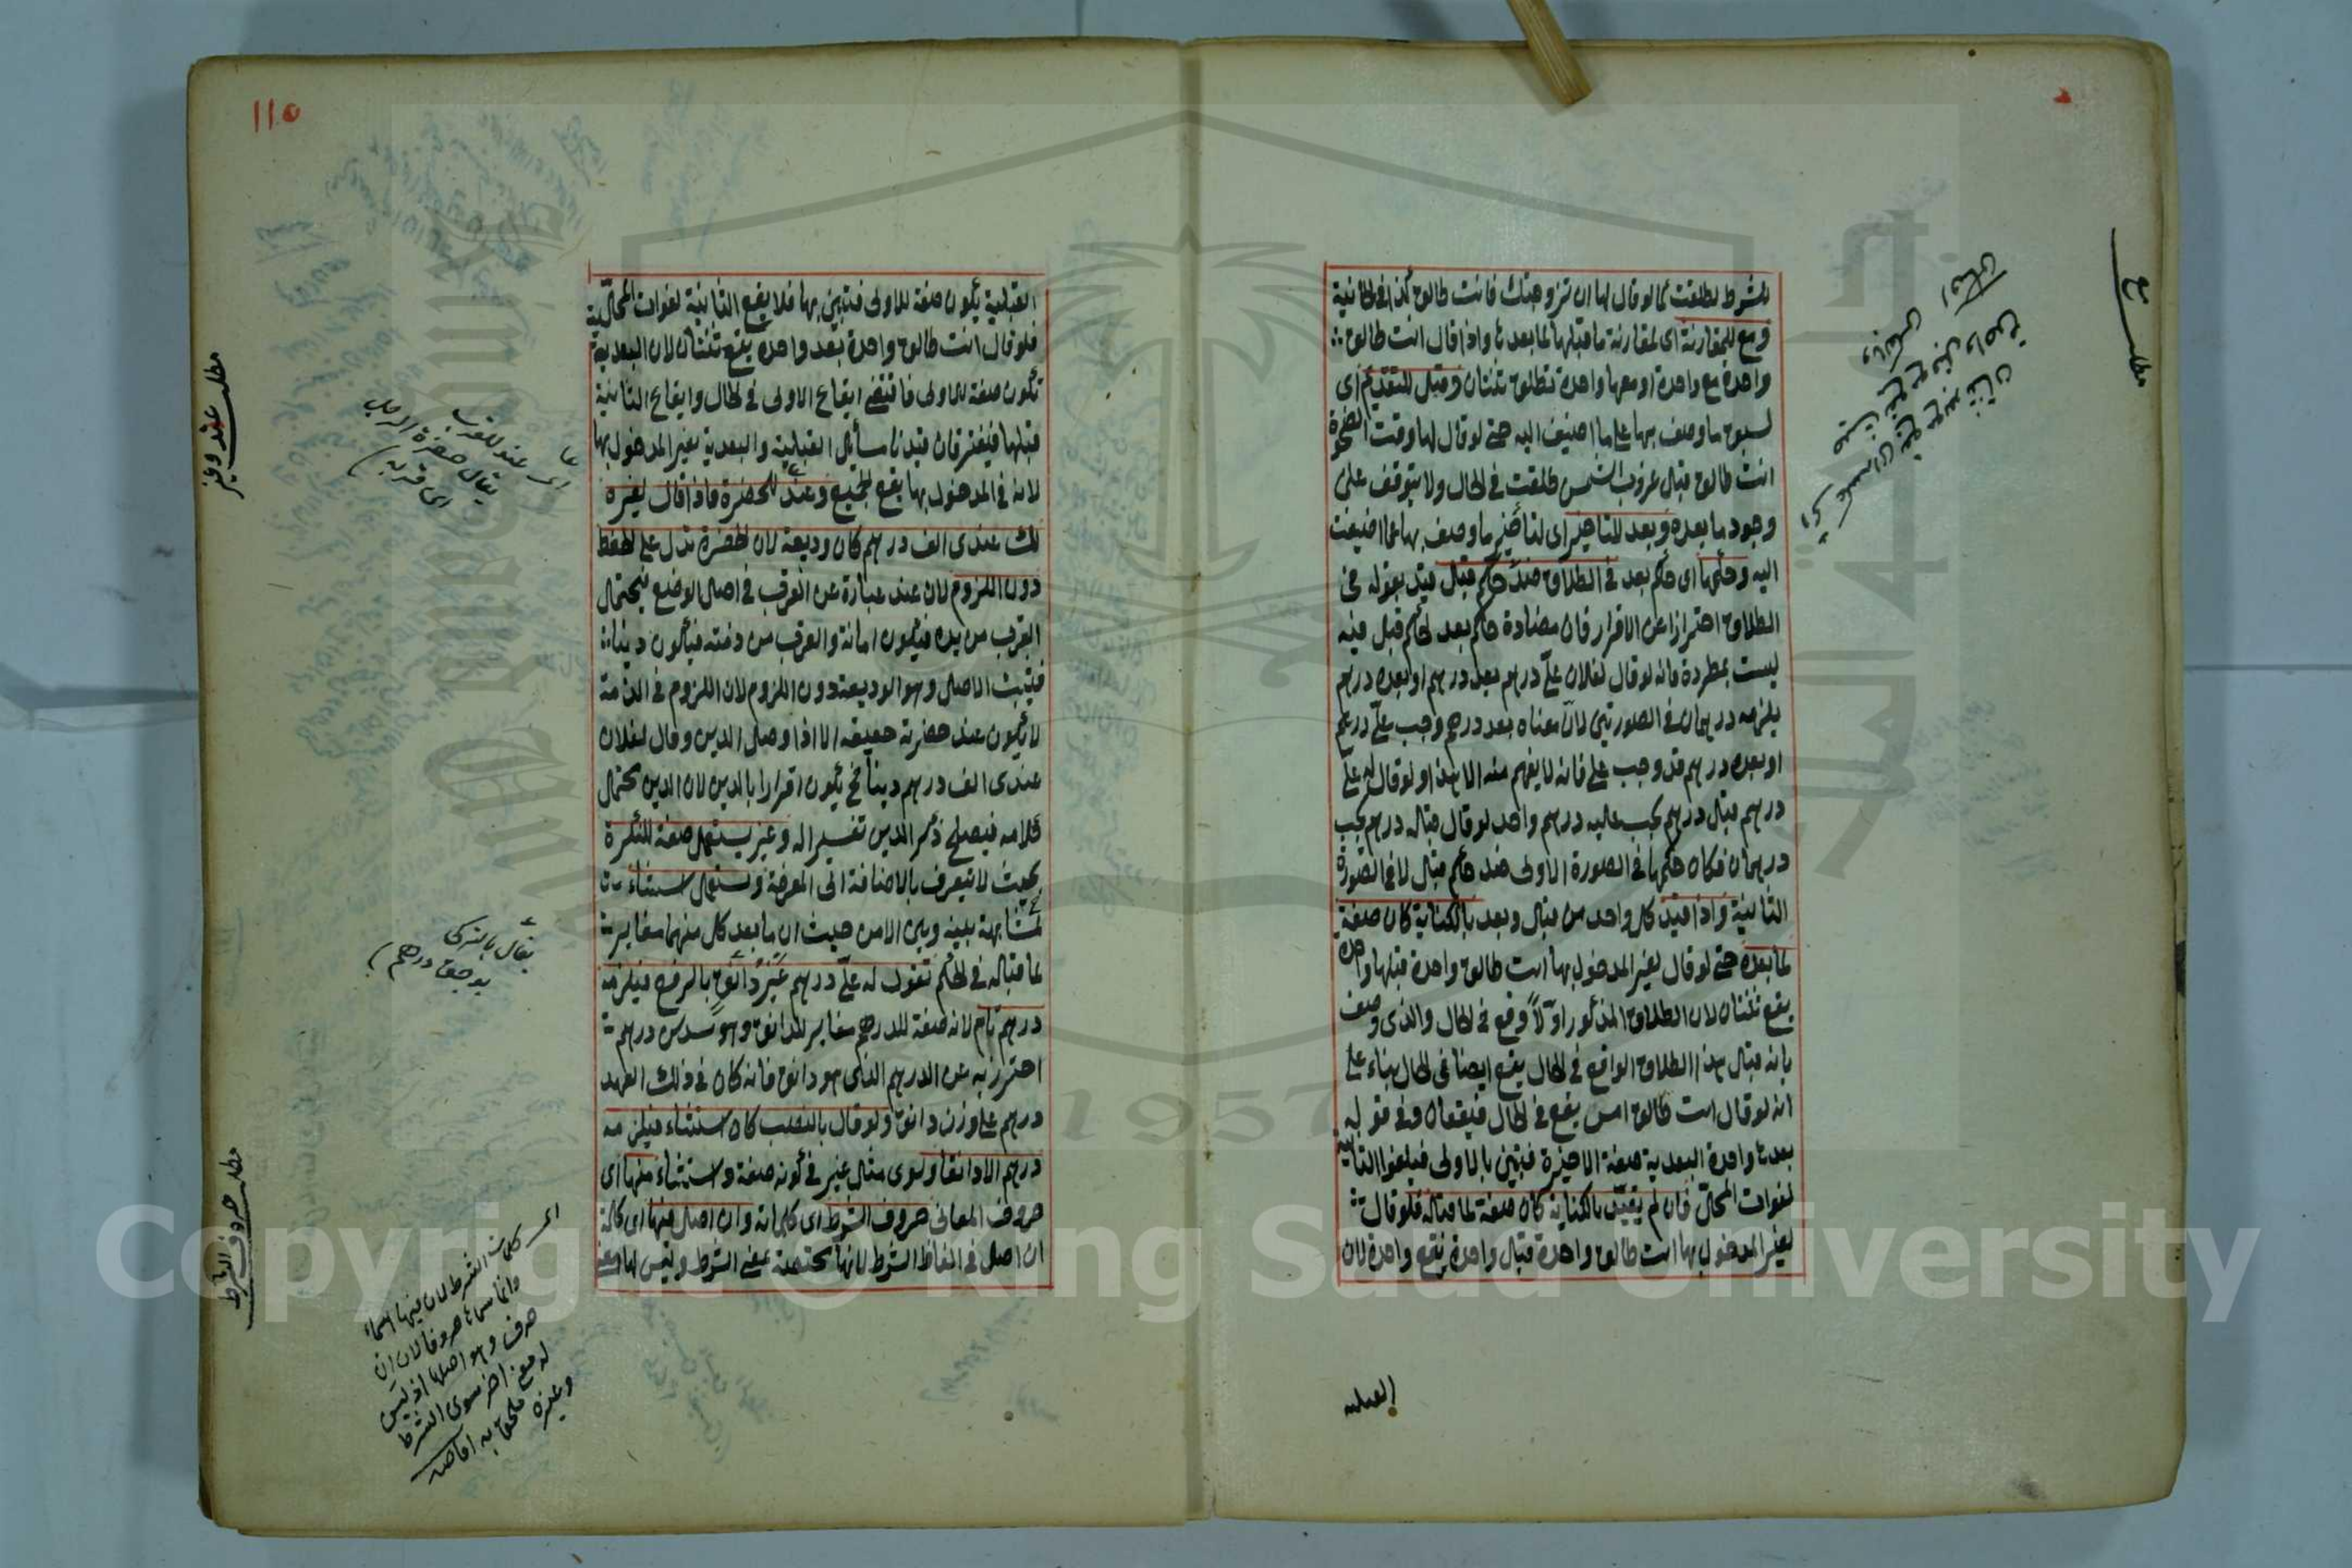 للشرط لطلقت كما لو قال لها ان تزوجتك فانت طالق كذا في الخانية
ومع للمقارنة اى لمقارنة ما قبلها لما بعدها واذا قال انت طالق
واحدة مع واحدة او معها واحدة تطلق ثنتان وقبل للتقديم اى
لسبق ما وصف بها على ما اضيف اليه حتى لو قال لها وقت الضحوة
انت طالق قبل غروب الشمس طلقت في الحال ولا يتوقف على
وجود ما بعده وبعد للتاخير اى لتأخير ما وصف بها عما اضيفت
اليه وحكمها اى حكم بعد في الطلاق ضد حكم قبل قيد بقوله في
الطلاق احترازا عن الاقرار فان مضادة حكم بعد لحكم قبل فيه
ليست بمطردة فانه لو قال لفلان علىّ درهم بعد درهم او بعده درهم
يلزمه درهمان في الصورتين لان معناه بعد درهم وجب علىّ درهم
او بعده درهم قد وجب على فانه لا يفهم منه الا هذا ولو قال له على
درهم قبل درهم يجب عليه درهم واحد لو قال قبله درهم يجب
درهمان فكان حكمها في الصورة الاولى ضد حكم قبل لا في الصورة
الثانية واذا قيد كل واحد من قبل وبعد بالكناية كان صفة
لما بعده حتى لو قال لغير المدخول بها انت طالق واحدة قبلها واحدة
يقع ثنتان لان الطلاق المذكور اوّلاً وقع في الحال والذى وصف
بانه قبل هذا الطلاق الواقع في الحال يقع ايضا في الحال بناء على
انه لو قال انت طالق امس يقع في الحال فيقعان وفى قوله
بعدها واحدة البعدية صفة الاخيرة فتبين بالاولى فيلغوا الثانية
لفوات المحلّ فان لم يقيّد بالكناية كان صفة لما قبله فلو قال
لغير المدخول بها انت طالق واحدة قبل واحدة يقع واحدة لان
القبلية
مطلب مع
110
القبلية يكون صفة للاولى فتبين بها فلا يقع الثانية لفوات المحلّية
فلو قال انت طالق واحدة بعد واحدة يقع ثنتان لان البعدية
تكون صفة للاولى فاقتضى ايقاع الاولى في الحال وايقاع الثانية
قبلها فيقترقان قيدنا مسائل القبلية والبعدية بغير المدخول بها
لانه في المدخول بها يقع الجميع وعند للحضرة فاذا قال لغيره
لك عندى الف درهم كان وديعة لان الحضرة تدل على الحفظ
دون اللزوم لان عند عبارة عن القرب في اصل الوضع فيحتمل
القرب من يده فيكون امانة والقرب من ذمته فيكون دينا
فيثبت الاصل وهو الوديعة دون اللزوم لان اللزوم في الذمة
لا يكون عند حضرته حقيقة الا اذا وصل الدين وقال لفلان
عندى الف درهم ديناً فح يكون اقرارا بالدين لان الدين محتمل
كلامه فيصلح ذكر الدين تفسيرا له وغير يستعمل صفة للنكرة
بحيث لا تيعرف بالاضافة الى المعرفة ويستعمل استثناء
لمشابهة بينه وبين الا من حيث ان ما بعد كل منهما مغايرة
لما قبله في الحكم تقول له علىّ درهم غيرُ دانق بالرفع فيلزمه
درهم تام لانه صفة للدرهم مغاير للدانق وهو سدس درهم
احترز به عن الدرهم الذى هو دانق فانه كان في ذلك العهد
درهم على وزن دانق ولو قال بالنصب كان استثناء فيلزمه
درهم الا دانقا وسوى مثل غير في كونه صفة واستثناء منها اى
حروف المعانى حروف الشرط اى كلماته وان اصل فيها اى كلمة
ان اصل في الفاظ الشرط لانها مختصة بمعنى الشرط وليس لها معنى
مطلب عند وغير
اى عند للقرب
يقال حضرة الرجل
اى قربه
يقال بالتركى
بوجق درهم
مطلب حروف الشرط
اى كلمات الشرط لان فيها اسماء
وانما سماها حروفا لان ان
حرف وهو اصلها اذ ليس
له معنى آخر سوى الشرط
وغيره ملحق به